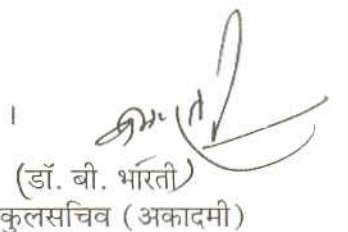 ।
(डॉ. बी. भारती)
कुलसचिव (अकादमी)